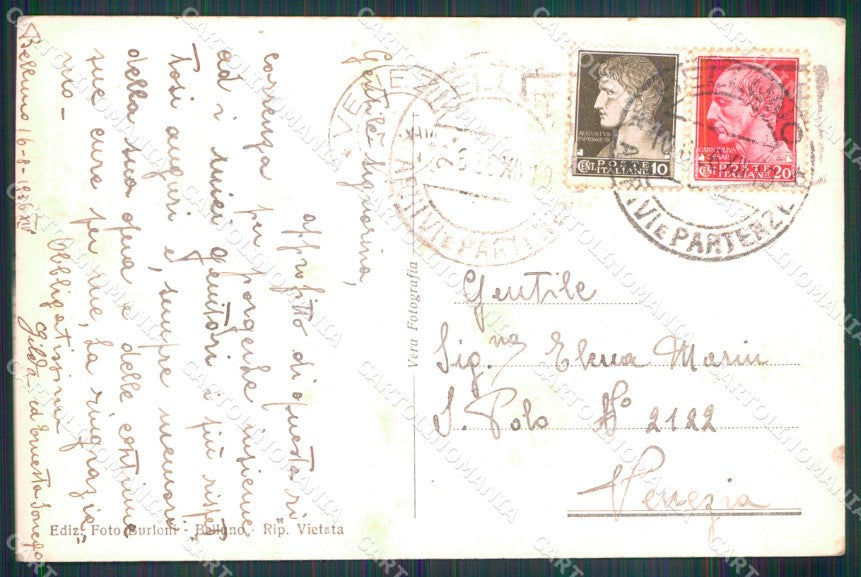 Belluno 16-8-1936 XIV
Gentile Signorina,
approfitto di questa ri-
correnza per porgerLe insieme
ed i miei genitori i più rispet-
tosi auguri e, sempre memori
della sua opera e delle continue
sue cure per me, La ringrazia-
mo-
Obbligatissima
Gilda ed Ernesta
Ediz. Foto Burloni - Belluno - Rip. Vietata
Vera Fotografia
Gentile
Sig.na Elena Marin
S. Polo No 2122
Venezia
VENEZIA
ARRIVI E PARTENZE
AUGUSTUS
IMPERATOR
POSTE
CENT. ITALIANE 10
CAESAR
POSTE
CENT. ITALIANE 20
ARRIVI E PARTENZE
CARTOLINOMANIA